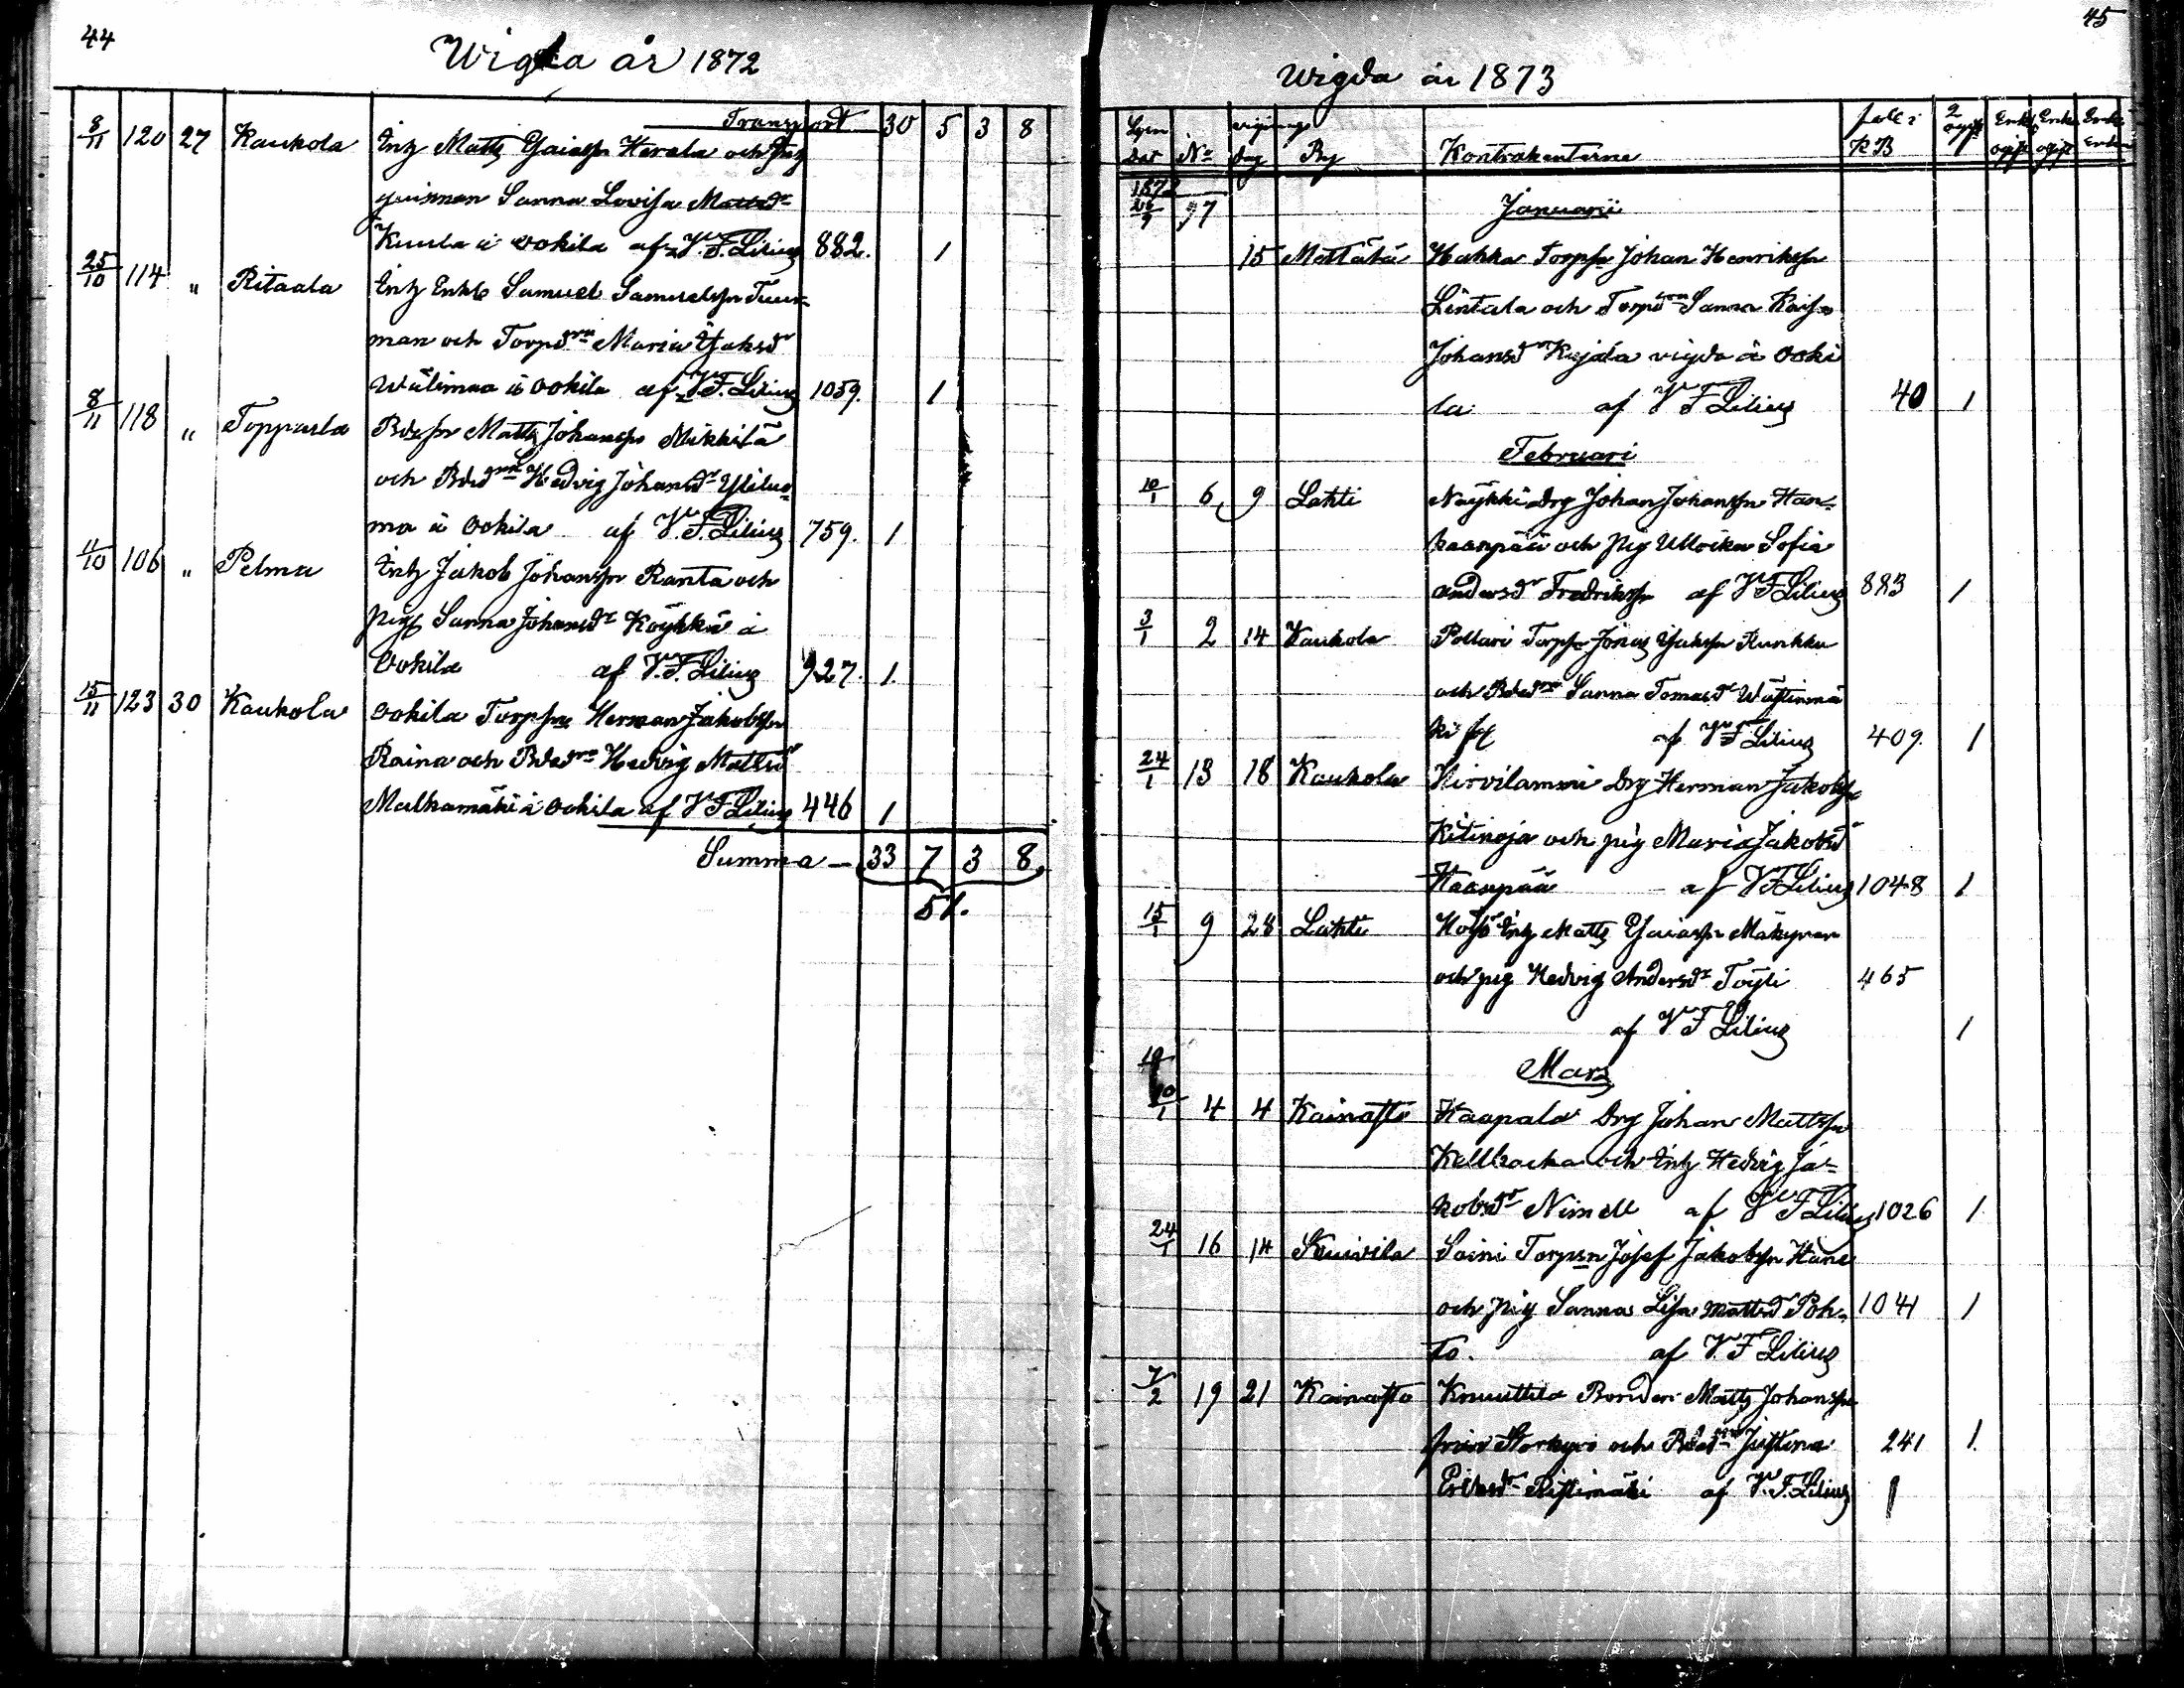 44
Wigda år 1872
Transport 30 5 3 8
8/11 120 27 Kaukola Inh Matts Esaiasson Herala och Inh
quisman Sanna Lovisa Mattsdr
Kuula i Ookila af V. F. Lilius 882. 1
25/10 114 " Ritaala Inh Enkl Samuel Samuelsson Tuur-
man och Torpdrn Maria Isaksdr
Wälimaa i Ookila af V. F. Lilius 1059. 1
8/11 118 " Topparla Bdeson Matts Johansson Mikkilä
och Bdedrn Hedvig Johansdr
ma i Ookila af V. F. Lilius 759. 1
11/10 106 " Pelma Inh Jakob Johansson Ranta och
Pig Sanna Johansdr Köykkä i
Ookila af V. F. Lilius 927. 1.
15/11 123 30 Kaukola Ookila Torpson Herman Jakobsson
Raina och Bdedrn Hedvig Mattsdr
Malkamäki i Ookila af V F Lilius 446 1
Summa — 33 7 3 8
51.
45
Wigda år 1873
Lysn vignings folk i 2 Enkl Enka Enkl
dat No dag By Kontrahenterna KB ogift ogift ogift Enka
1872
97 Januarii
15 Mattälä Hakka Torpson Johan Henriksson
Lintala och Torpdrn Sanna Kaisa
Johansdr Kujala vigda i Ooki
la af V F Lilius 40 1
Februari
10/1 6 9 Lahti Näykki Drg Johan Johansson Han-
kaanpää och pig Ulrika Sofia
Andersdr Fredriksson af V F Lilius 883 1
3/1 2 14 Kaukola Pollari Torpson Jonas Isaksson Runkku
och Bdedrn Sanna Tomasdr Wästinmä
ki af V F Lilius 409. 1
24/1 13 18 Kaukola Hirvilammi Drg Herman Jakobsson
Kitinoja och pig Maria Jakobsdr
Haanpää af V F Lilius 1048 1
15/1 9 28 Lahti Inh Matts Esaiasson Mäkynen
och pig Hedvig Andersdr Töyli 465
af V F Lilius 1
Mars
10/1 4 4 Kainasto Haapala Drg Johan Mattsson
och Inh Hedvig Ja-
kobsdr Nimell af V F Lilius 1026 1
24/1 16 14 Kuivila Saini Torpson Josef Jakobsson Hane
och pig Sanna Lisa Mattsdr Poh- 1041 1
to. af V. F Lilius
7/2 19 21 Kainasto Knuuttila Bonden Matts Johansson
från Storkyro och Bdedrn Justina 241 1.
Eriksdr Ristimäki af V. F. Lilius